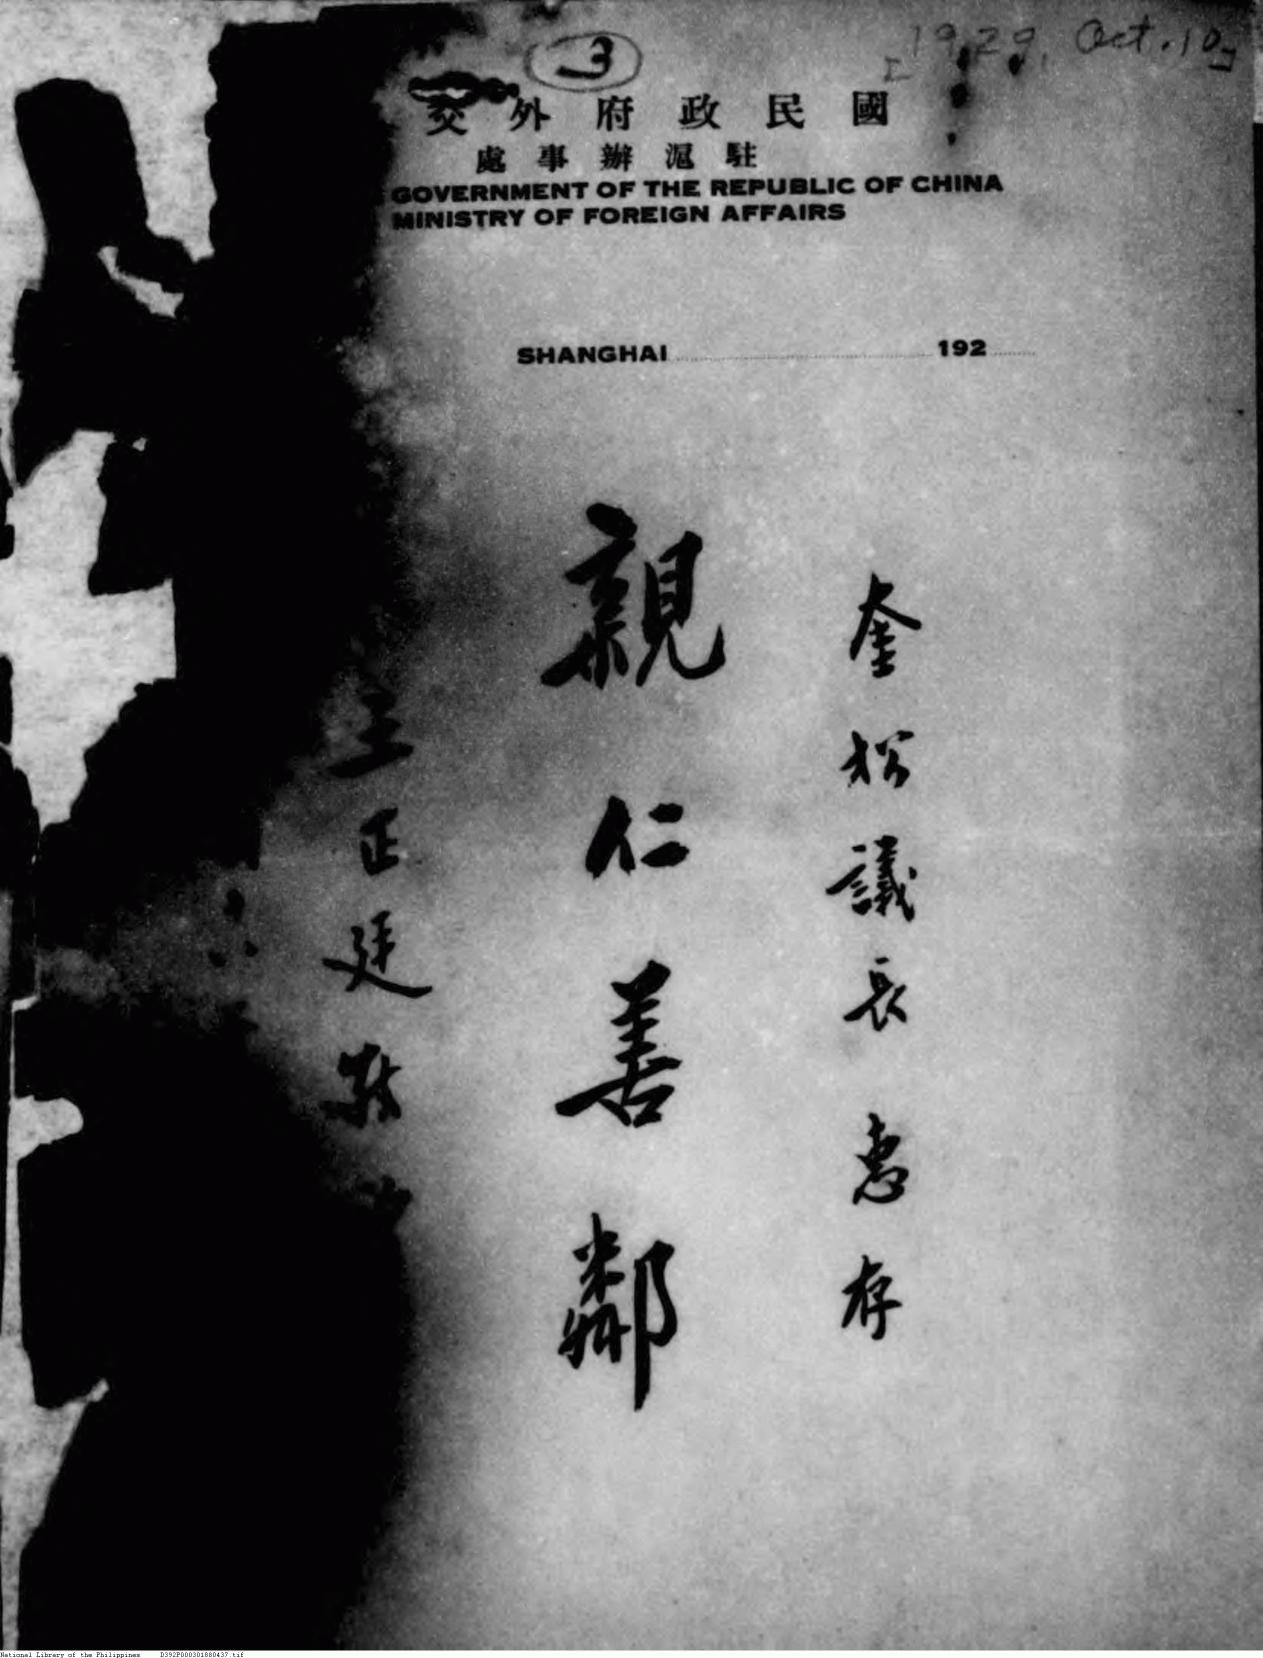 3
[1929, Oct. 10]
國民政府外交
駐滬辦事處
GOVERNMENT OF THE REPUBLIC OF CHINA
MINISTRY OF FOREIGN AFFAIRS
SHANGHAI 192
奎松議長惠存
親仁善鄰
王正廷敬
National Library of the Philippines D392P000301880437.tif